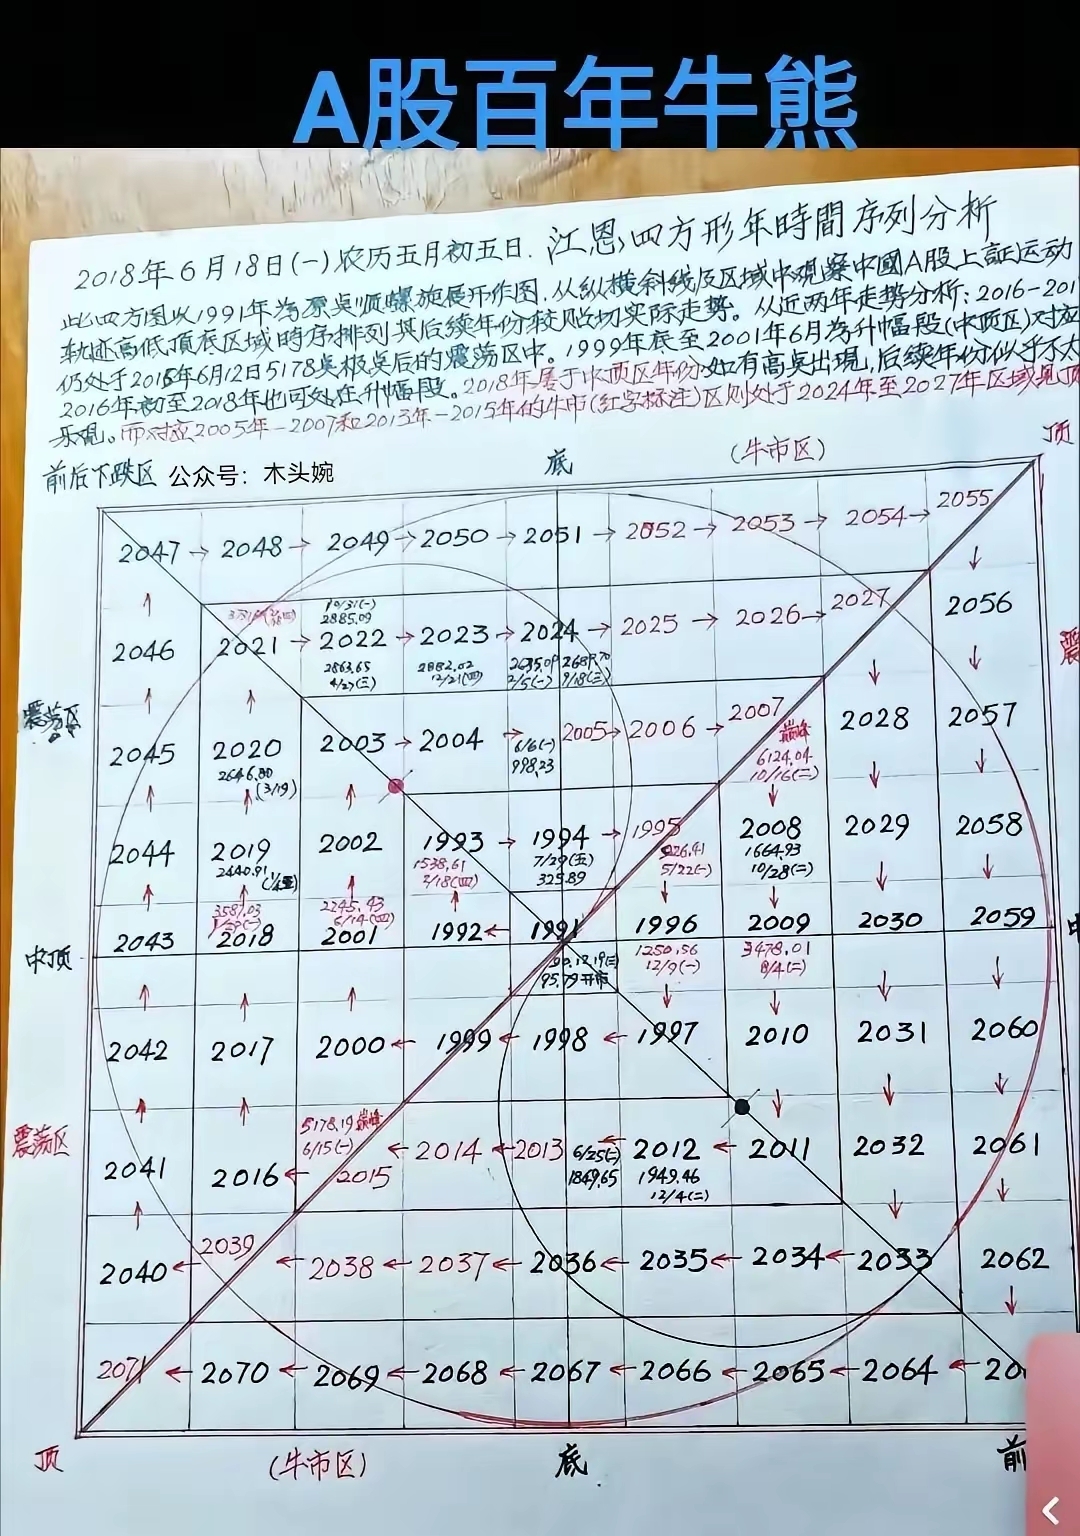 A股百年牛熊
2018年6月18日(一)农历五月初五日.江恩四方形年時間序列分析
此四方图以1991年为原点顺螺旋展开作图.从纵横斜线及区域中观察中國A股上証运动
轨迹高低頂底区域時序排列其后续年份较贴切实际走势。从近两年走势分析:2016-201
仍处于2015年6月12日5178点极点后的震荡区中。1999年底至2001年6月为升幅段(中顶区)对应
2016年初至2018年也可处在升幅段。2018年属于中顶区年份如有高点出現,后续年份似乎不太
乐观。而对应2005年-2007和2013年-2015年的牛市(红字标注)区则处于2024年至2027年区域见顶
前后下跌区 公众号:木头婉 底 (牛市区) 顶
2047→2048→2049→2050→2051→2052→2053→2054→2055
↑ 10/31(一) ↓
2885.09
2046 2021→2022→2023→2024→2025→2026→2027 2056
2863.65 2882.02 2635.09 2689.70
4/27(三) 12/21(四) 2/5(一) 9/18(三)
震
震荡区
2045 2020 2003→2004→ 2005→2006→2007 2028 2057
2646.80 6/6(一) 巅峰
(3/19) 998.23 6124.04
10/16(二)
2044 2019 2002 1993→1994→1995 2008 2029 2058
2440.91 1538.61 7/29(五) 926.41 1664.93
2/18(四) 325.89 5/22(一) 10/28(二)
3587.03 2245.43
1/29(一) 6/14(四)
2043 2018 2001 1992←1991 1996 2009 2030 2059
中顶 90.12.19(三) 1250.56 3478.01 中
95.79开市 12/9(一) 8/4(二)
2042 2017 2000←1999←1998←1997 2010 2031 2060
5178.19巅峰
震荡区 6/15(一)
2041 2016←2015 ←2014←2013 6/25(二) ←2012←2011 2032 2061
1849.65 1949.46
12/4(二)
2040←2039 ←2038←2037←2036←2035←2034←2033 2062
2071←2070←2069←2068←2067←2066←2065←2064←20
顶 (牛市区) 底 前